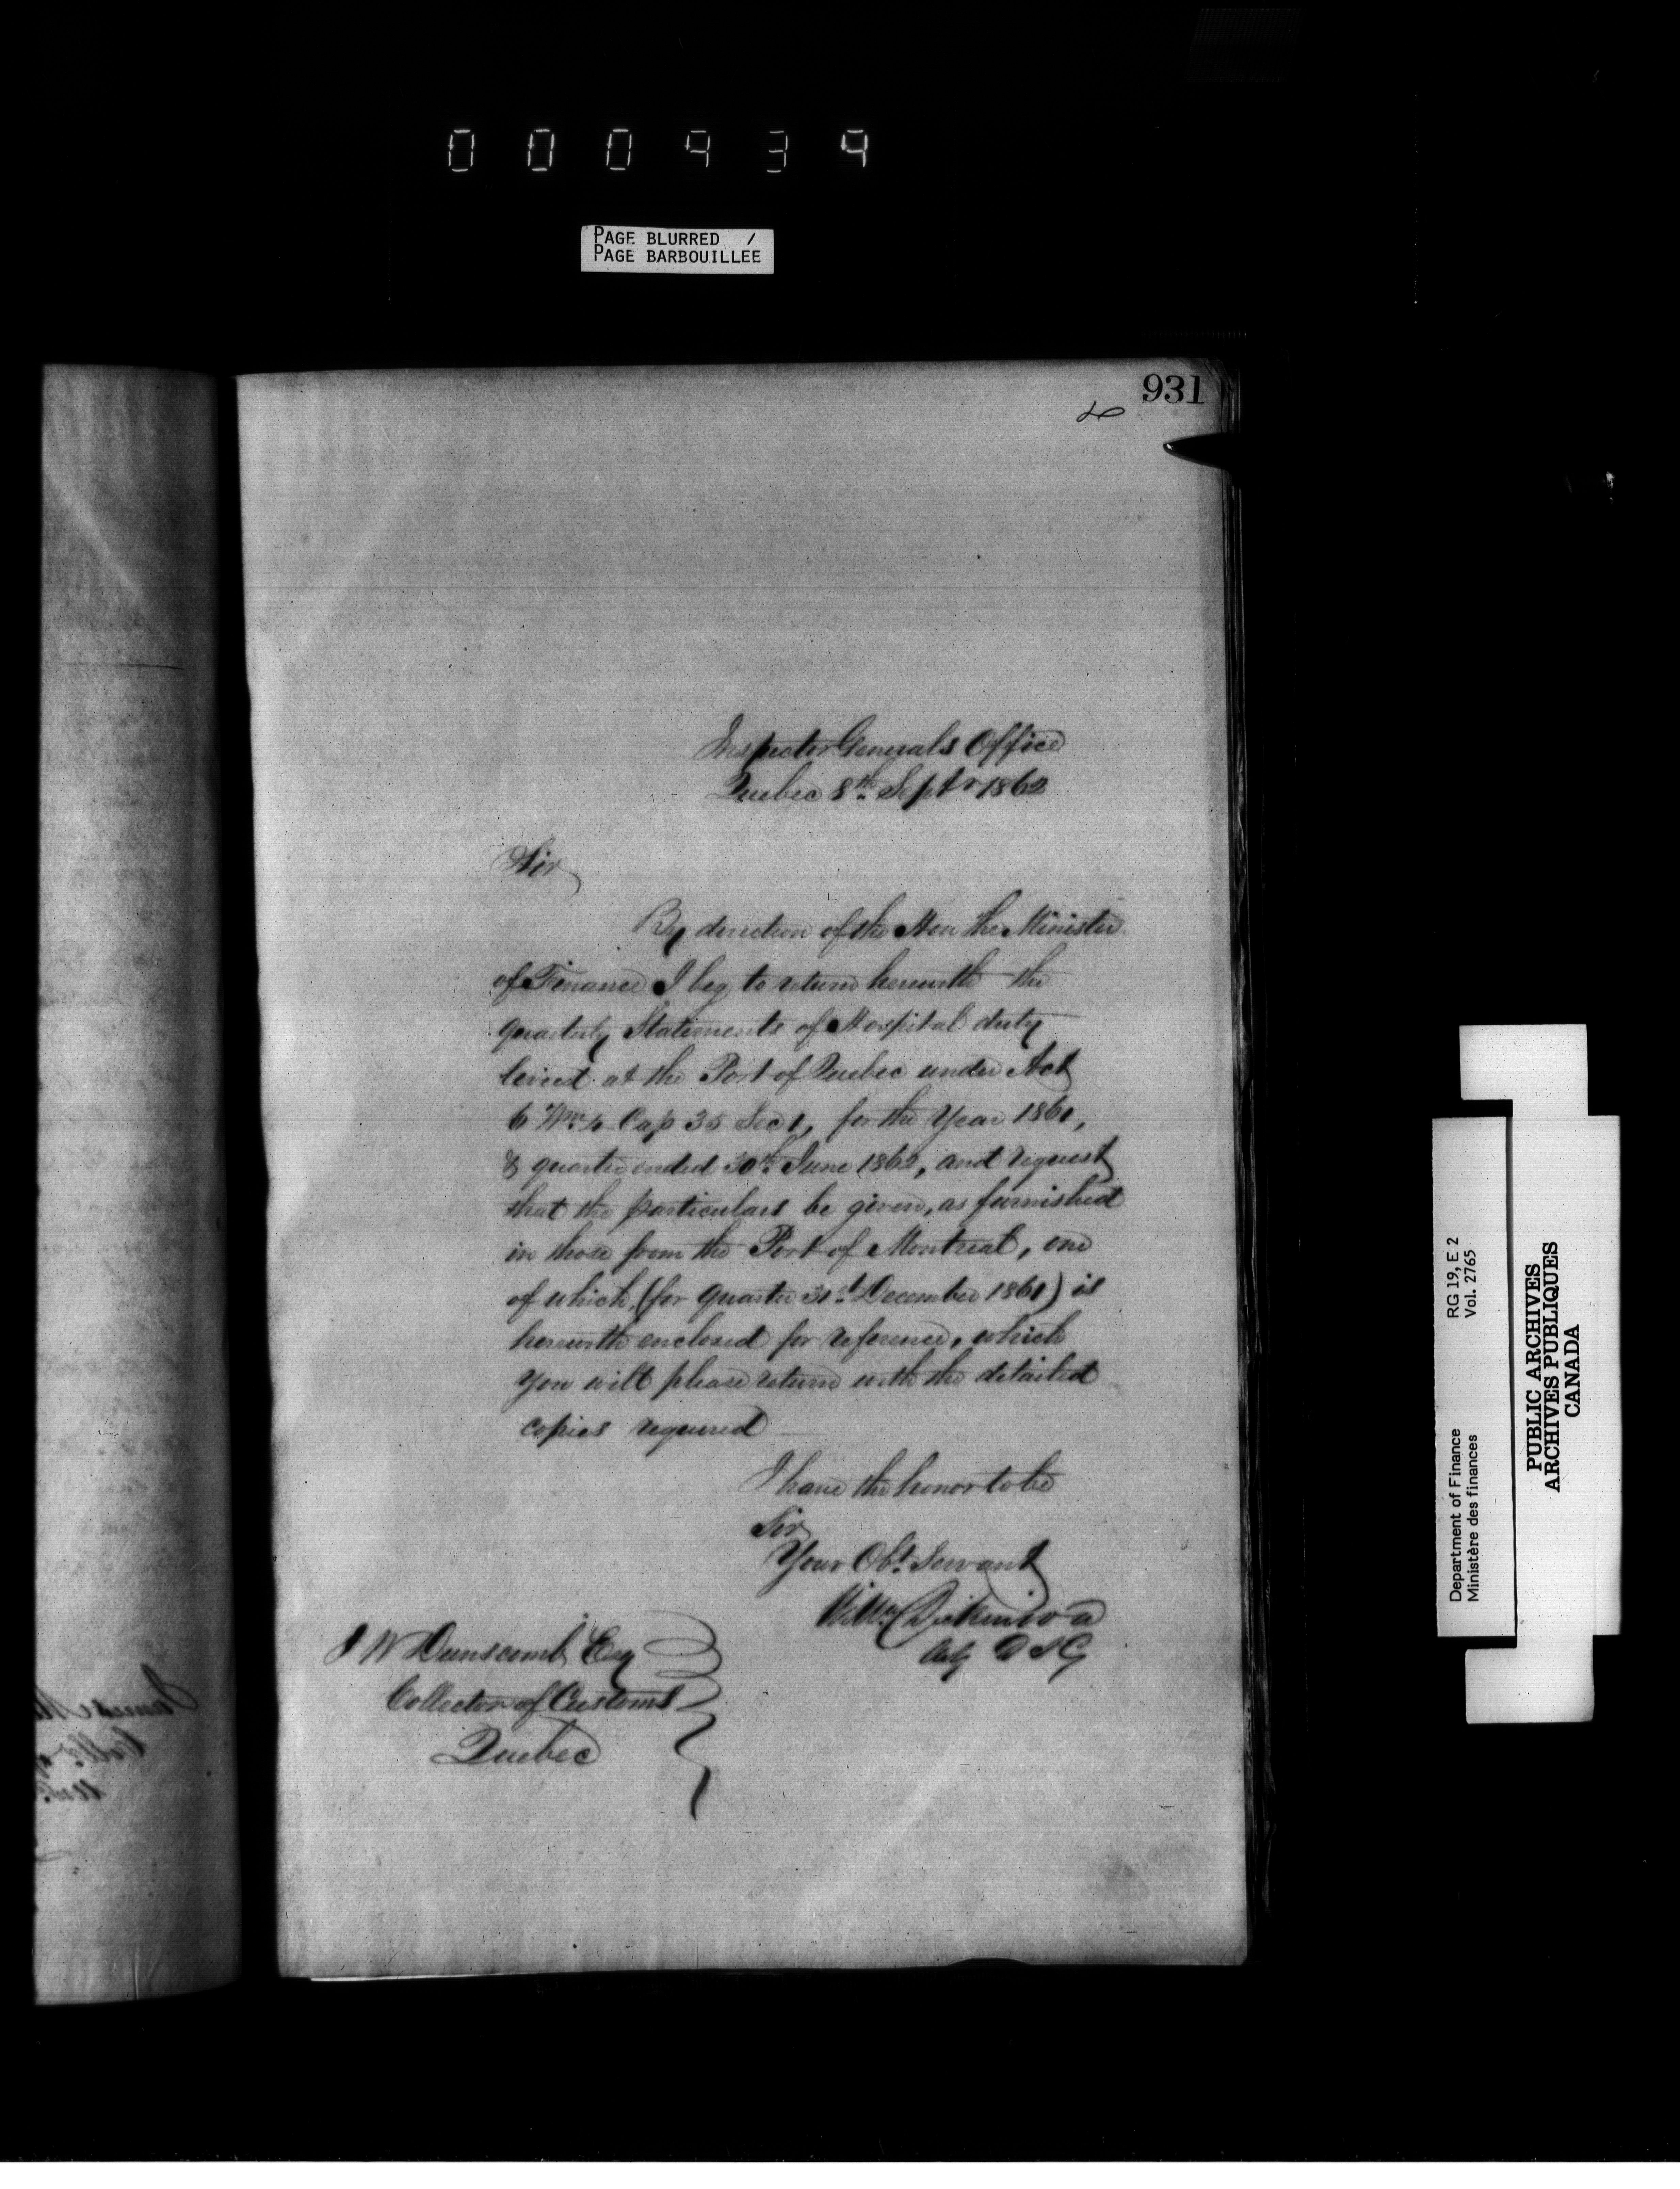 000934
PAGE BLURRED /
PAGE BARBOUILLEE
931
Inspector Generals Office
Quebec 8th Septr 1862
Sir
By direction of the Hon the Minister
of Finance I beg to return herewith the
quarterly Statements of Hospital duty
levied at the Port of Quebec under Act
6 Wm 4 Cap 35 Sec 1, for the Year 1861,
& quarter ended 30th June 1862, and request
that the particulars be given, as furnished
in those from the Port of Montreal, one
of which, (for quarter 31st December 1861) is
herewith enclosed for reference, which
you will please return with the detailed
copies required
I have the honor to be
Sir
Your Obt. Servant
Wm Dickinson
Actg D I G
J W Dunscomb Esq
Collector of Customs
Quebec
James
Collr of
Department of Finance RG 19, E 2
Ministère des finances Vol. 2765
PUBLIC ARCHIVES
ARCHIVES PUBLIQUES
CANADA